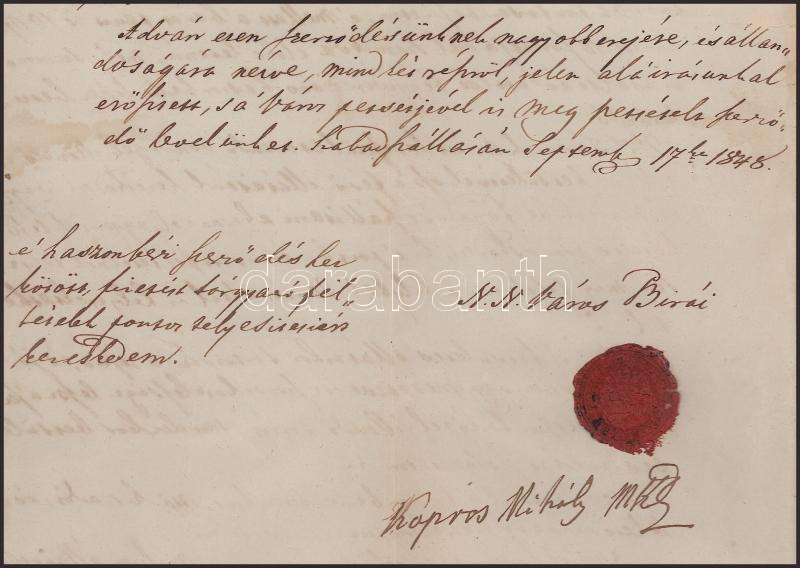 Advan ezen szerződésünknek nagyobb erejére, és állan„
dóságára nézve, mind két részről, jelen aláirásunkal
erősitett, s a' Város petsétjével is meg petsételt szerző„
dő levelünket. Szabadszálláson Septemb 17ke 1848.
e' haszonbéri szerződéshez
kötött, fizetést tárgyazó fél„
tételek pontos telyesitésiért
kezeskedem.
N. N. Város Birái
darabanth
Kopros Mihály mk